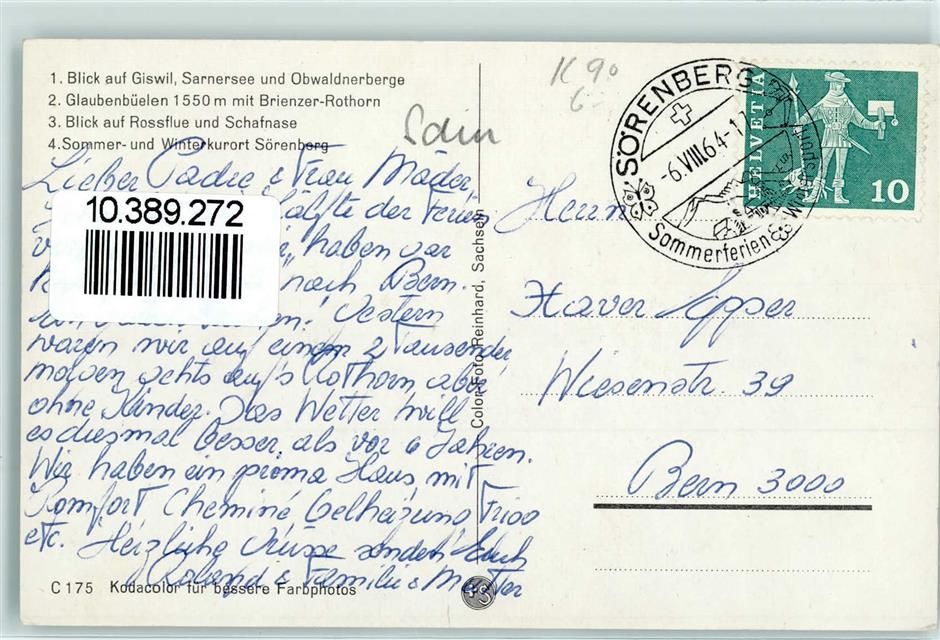 1. Blick auf Giswil, Sarnersee und Obwaldnerberge
2. Glaubenbüelen 1550 m mit Brienzer-Rothorn
3. Blick auf Rossflue und Schafnase
4. Sommer- und Winterkurort Sörenberg
K 90
6.-
SÖRENBERG
-6.VIII.64-1
Sommerferien
HELVETIA
10
Lieber Padre & Frau Mäder,
10.389.272
Hälfte der Ferien
haben vor
nach Bern.
Gestern
waren wir auf einem 2 Tausender,
morgen gehts auf's Rothorn aber
ohne Kinder. Das Wetter will
es diesmal besser, als vor 6 Jahren.
Wir haben ein prima Haus, mit
Komfort Cheminé Oelheizung Frigo
etc. Herzliche Grüsse senden Euch
Roland & Familie & Mutter
C 175 Kodacolor für bessere Farbphotos
Color-Foto Reinhard, Sachseln
Herrn
Xaver Epper
Wiesenstr. 39
Bern 3000